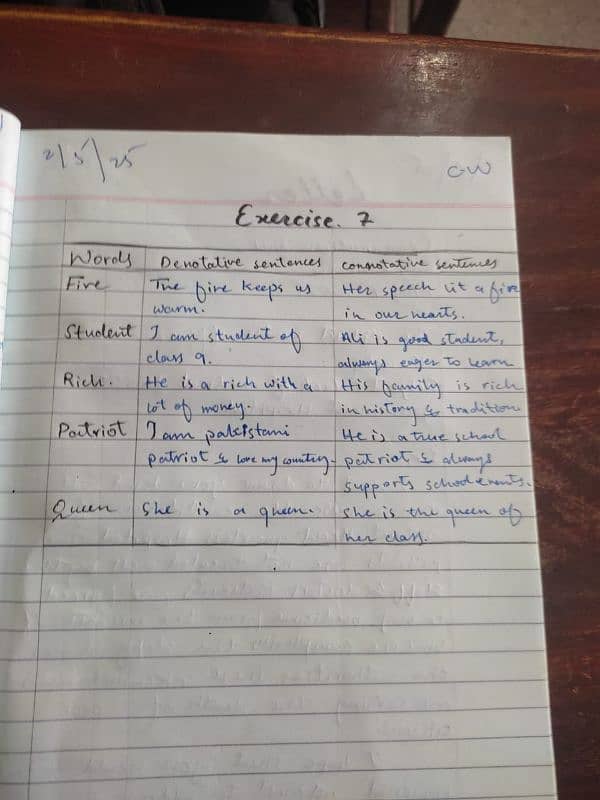 2/5/25
C-W
Exercise. 7
Words Denotative sentences connotative sentences
Fire The fire keeps us Her speech lit a fire
warm. in our hearts.
Student I am student of Ali is good student,
class 9. always eager to learn
Rich. He is a rich with a His family is rich
lot of money. in history & tradition
Patriot I am pakistani He is a true school
patriot & love my country. patriot & always
supports school events.
Queen She is a queen. She is the queen of
her class.